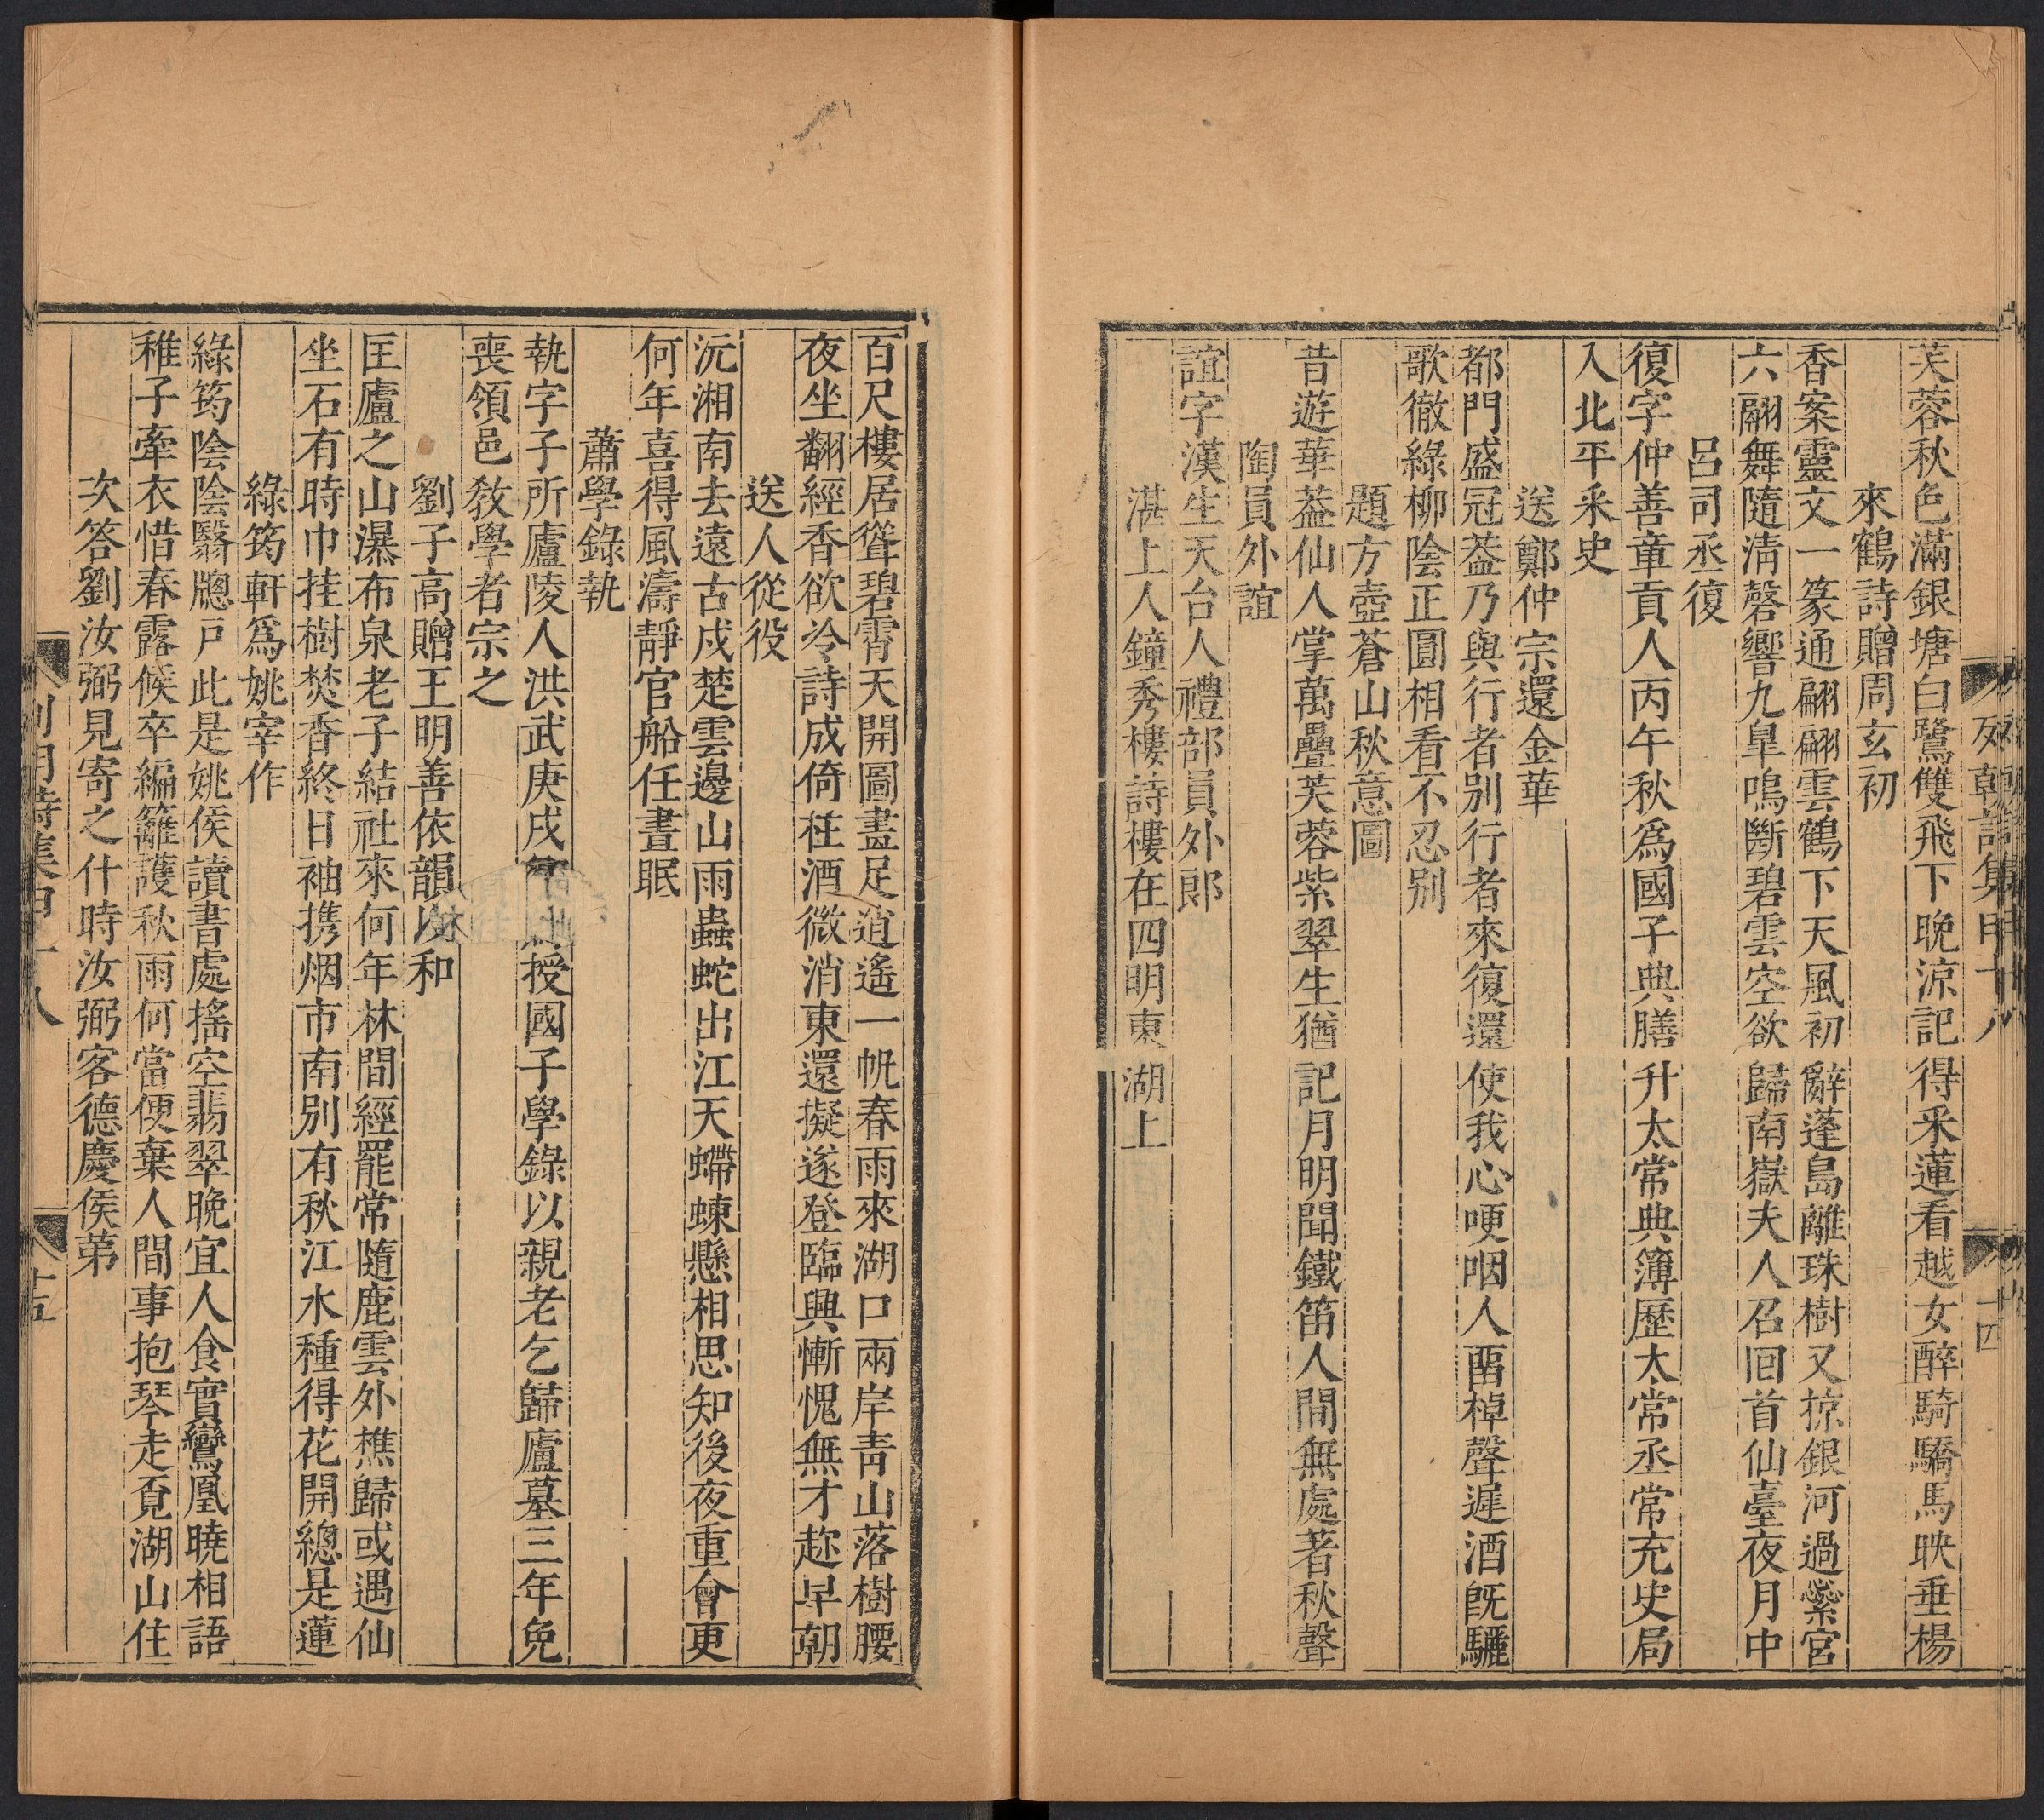 列朝詩集甲十八
十四
芙蓉秋色滿銀塘白鷺雙飛下晚涼記得采蓮看越女醉騎驕馬映垂楊
來鶴詩贈周玄初
香案靈文一篆通翩翩雲鶴下天風初辭蓬島離珠樹又掠銀河過紫宮
六翮舞隨淸磬響九臯鳴斷碧雲空欲歸南嶽夫人召回首仙臺夜月中
呂司丞復
復字仲善章貢人丙午秋爲國子典膳升太常典簿歷太常丞常充史局
入北平采史
送鄭仲宗還金華
都門盛冠葢乃與行者別行者來復還使我心哽咽人畱棹聲遲酒旣驪
歌徹綠柳陰正圓相看不忍別
題方壺蒼山秋意圖
昔遊華葢仙人掌萬疊芙蓉紫翠生猶記月明聞鐵笛人間無處著秋聲
陶員外誼
誼字漢生天台人禮部員外郎
湛上人鐘秀樓詩樓在四明東湖上
百尺樓居聳碧霄天開圖畫足逍遙一帆春雨來湖口兩岸靑山落樹腰
夜坐翻經香欲冷詩成倚柱酒微消東還擬遂登臨興慚愧無才趂早朝
送人從役
沅湘南去遠古戍楚雲邊山雨蟲蛇出江天螮蝀懸相思知後夜重會更
何年喜得風濤靜官船任晝眠
蕭學錄執
執字子所廬陵人洪武庚戌授國子學錄以親老乞歸廬墓三年免
喪領邑敎學者宗之
劉子高贈王明善依韻以和
匡廬之山瀑布泉老子結社來何年林間經罷常隨鹿雲外樵歸或遇仙
坐石有時巾挂樹焚香終日袖携烟市南別有秋江水種得花開總是蓮
綠筠軒爲姚宰作
綠筠陰陰翳牕戸此是姚侯讀書處搖空翡翠晚宜人食實鸞凰曉相語
稚子牽衣惜春露候卒編籬護秋雨何當便棄人間事抱琴走覔湖山住
次答劉汝弼見寄之什時汝弼客德慶侯第
列朝詩集甲十八
十五